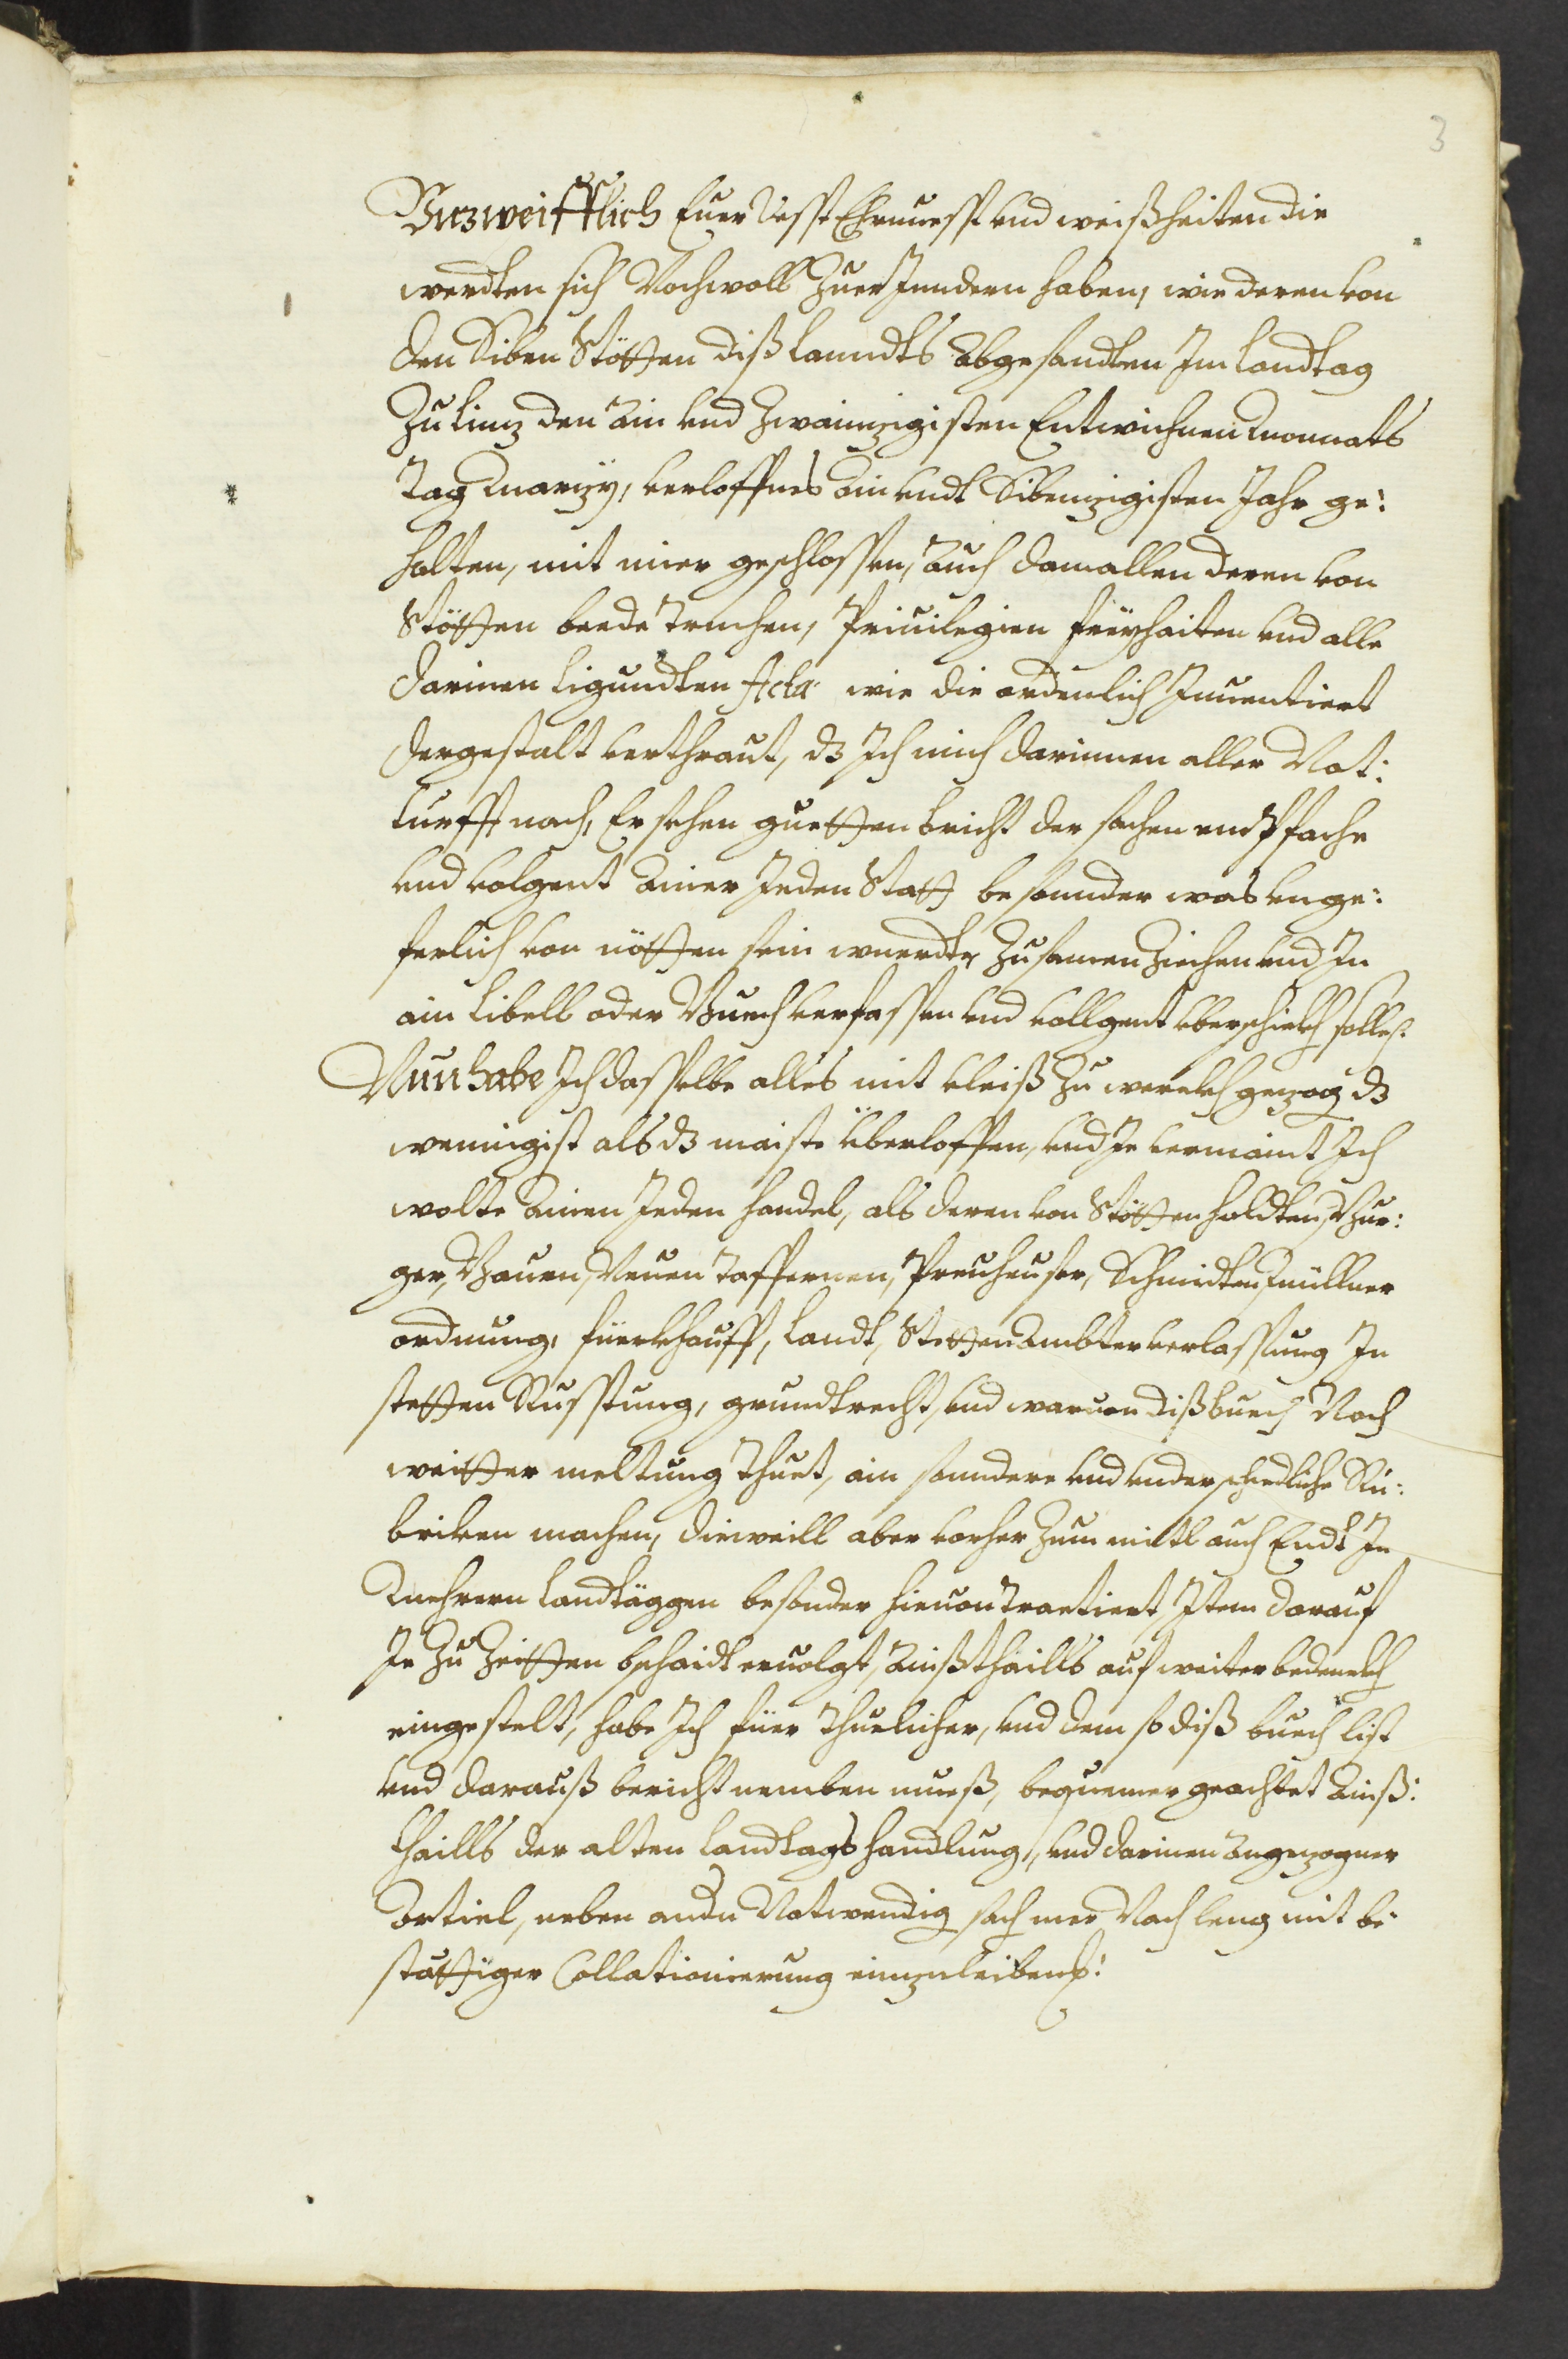 3
Vnzweifflich Euer Vesst Ehrnuesst vnd weißheiten die
werdten sich Nochwoll Zuer Jnndern haben, wie deren von
den Siben Stötten diß Lanndts Abgesandten Jm Landtag
Zu Linz den Ain vnd Zwainzigisten Entwichnen monnats
Tag Marzy, verloffnes Ain vndt Sibenzigisten Jahr ge:
halten, mit mier geschlossen, Auch damallen deren von
Stötten beede Truchen, Priuilegien freyhaiten vnd alle
darinen Ligundten Acta wie die ordenlich Jnuentiert
dergestalt verthraut, dz Jch mich darinnen aller Not:
turfft nach, Ersehen guetten bricht der sachen empfache
vnd volgent Ainer Jeden Statt besonnder was vnge:
ferlich von nötten sein wuerdte, Zusamen Ziechen vnd Jn
ain Libell oder Buech verfassen vnd vollgent vberschickh solle.
Nun habe Jch dasselbe alles mit vleiß Zu werckh gezog dz
wenigist als dz maiste Überloffen, vnd Je vermaint Jch
wolte Ainen Jeden handel, als deren von Stötten holdten, Bur:
ger, Bauen, Neuen Taffernen, Preuheuser, Schmidten, müllner
ordnung, fuerkhauff, Landt, Stetten Ambter verlassung Jn
stetten Russtung, grundtrecht, vnd waruon diß buech Noch
weitter meltung Thuet, ain sonndere vnd vnderschiedliche Ru:
briken machen, dieweill aber vorher Zum mittl auch Endt Jn
mehrern Landtäggen besonder hieuon Tractiert, Jtem darauf
Je Zu Zeitten bschaidt eruolgt, Ainßthaills auf weiter bedenckh
eingestelt, habe Jch fuer Thuelicher, vnd dem so diß buech list
vnd darauß bericht nemben mueß, bequemer geachtet Ainß:
thaills der alten Landtags handlung, vnd darinen Angezogner
Artiel, neben andn Notwendig sach mer Nach leng mit be
stättiger Collationierung einzuleiben: